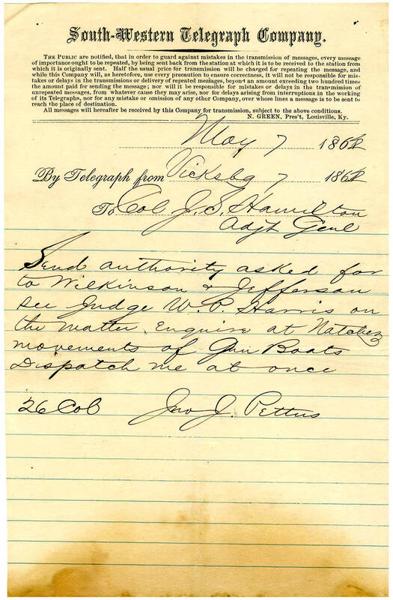 South-Western Telegraph Company.
THE PUBLIC are notified, that in order to guard against mistakes in the transmission of messages, every message
of importance ought to be repeated, by being sent back from the station at which it is to be received to the station from
which it is originally sent. Half the usual price for transmission will be charged for repeating the message, and
while this Company will, as heretofore, use every precaution to ensure correctness, it will not be responsible for mis-
takes or delays in the transmissions or delivery of repeated messages, beyond an amount exceeding two hundred times
the amount paid for sending the message; nor will it be responsible for mistakes or delays in the transmission of
unrepeated messages, from whatever cause they may arise, nor for delays arising from interruptions in the working
of its Telegraphs, nor for any mistake or omission of any other Company, over whose lines a message is to be sent to
reach the place of destination.
All messages will hereafter be received by this Company for transmission, subject to the above conditions.
N. GREEN, Pres't, Louisville, Ky.
May 7 1862
By Telegraph from Vicksbg 7 1862
To Col J. S. Hamilton
Adjt Genl
Send authority asked for
to Wilkinson & Jefferson
see Judge W. P. Harris on
the matter. Enquire at Natchez
movements of Gun Boats
Dispatch me at once
26 Cob Jno J. Pettus